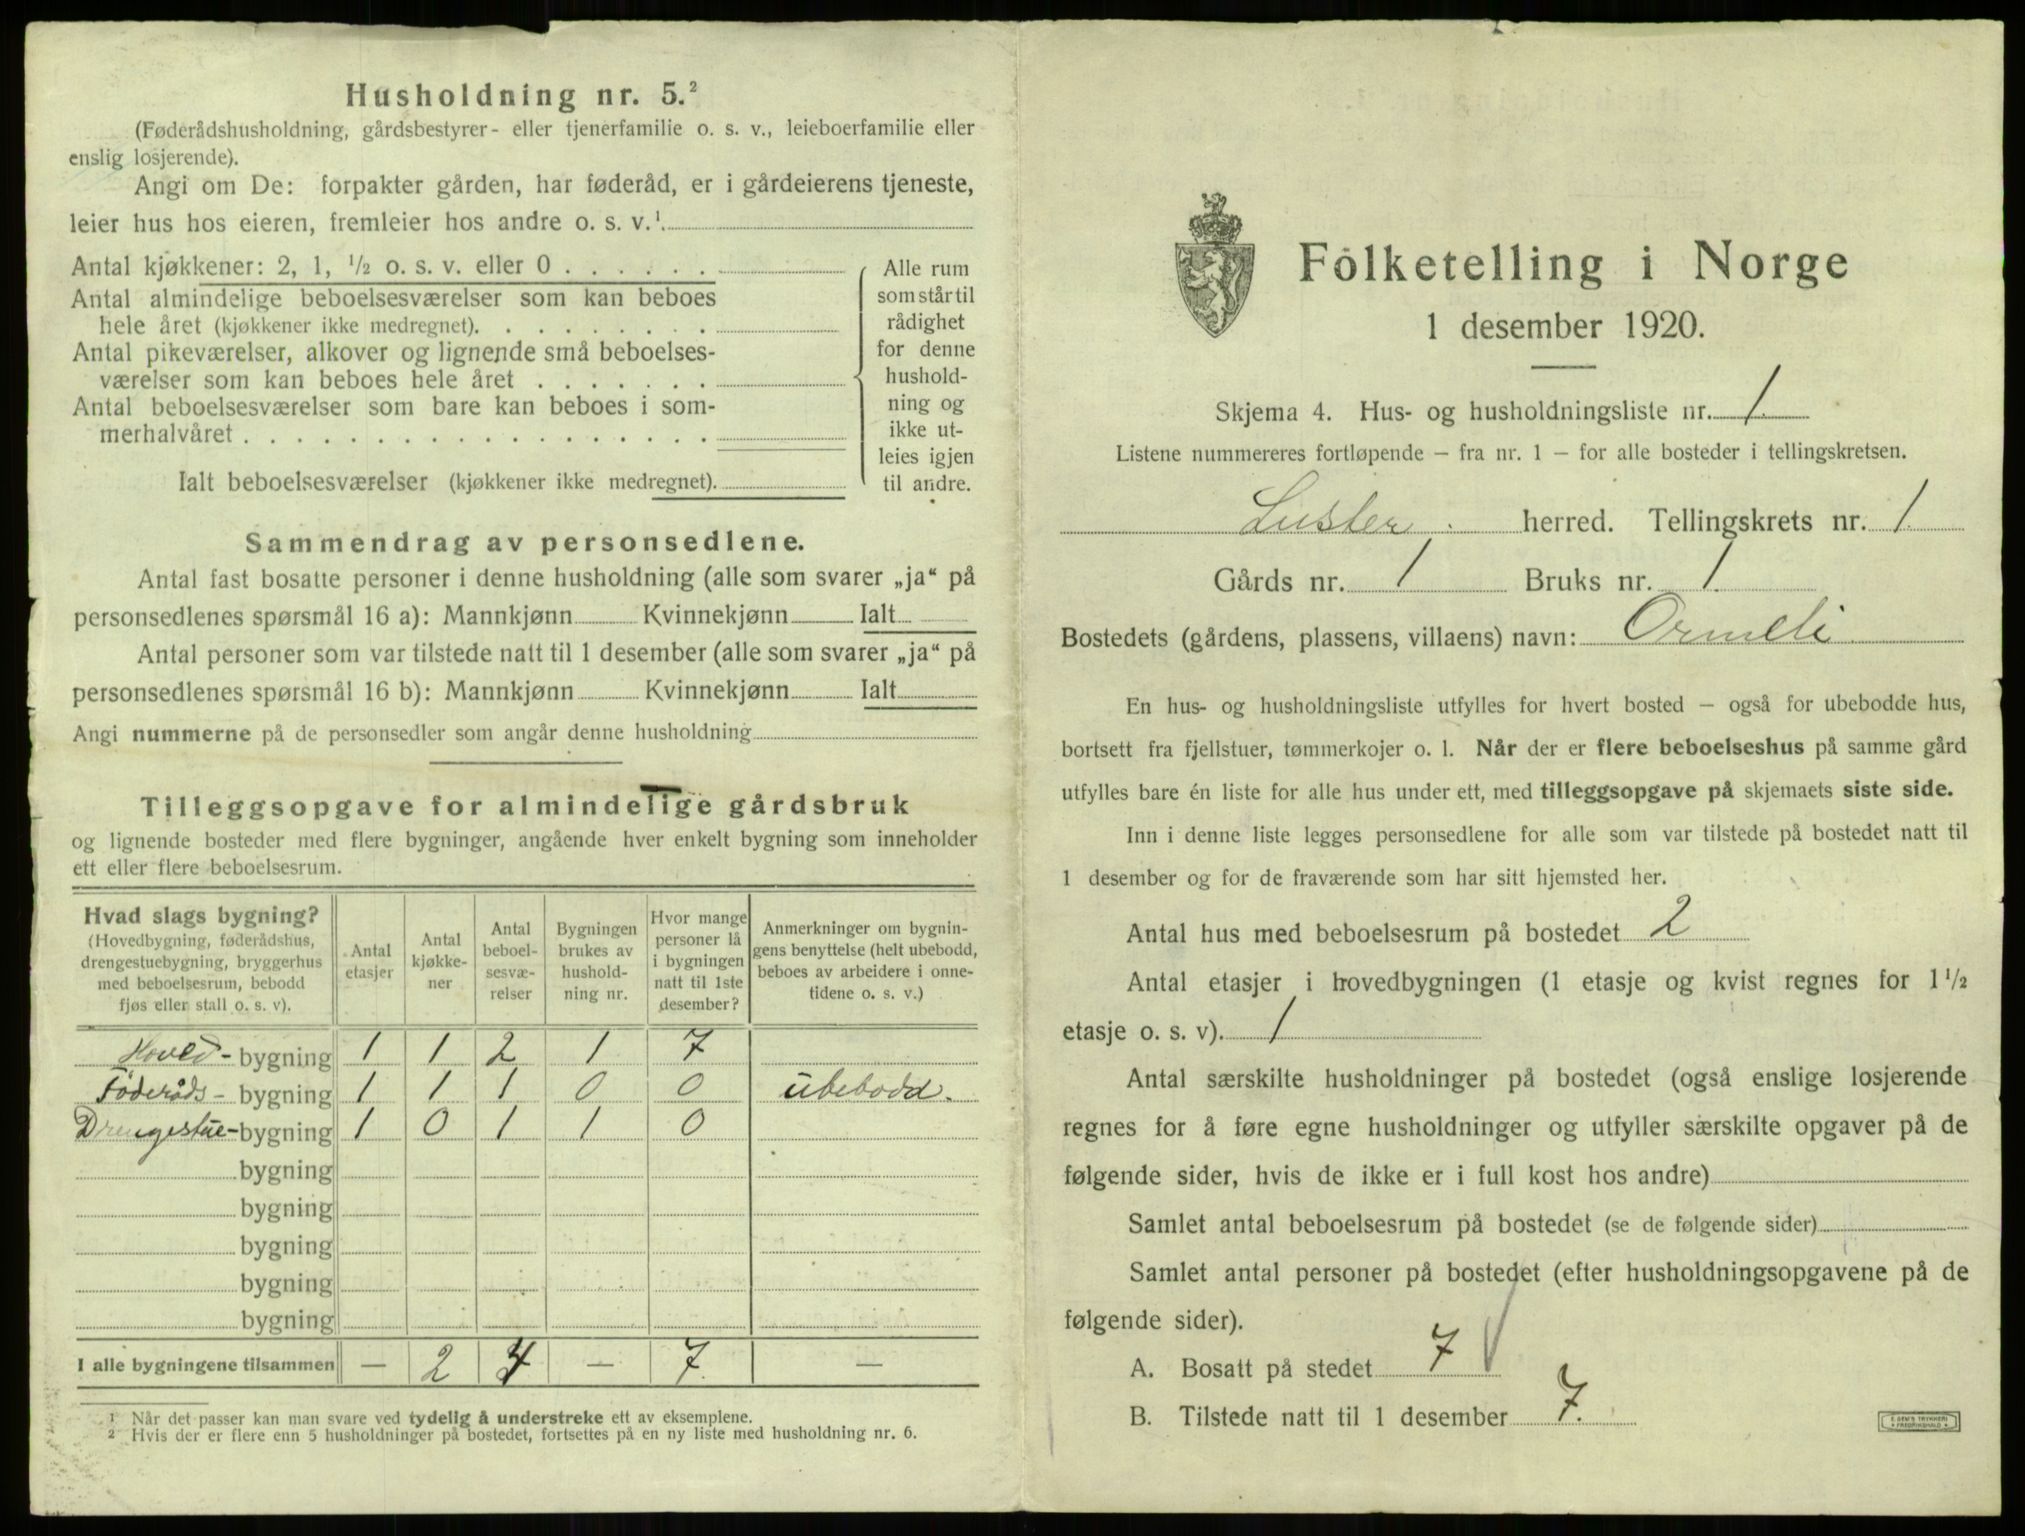 Husholdning nr. 5.²
(Føderådshusholdning, gårdsbestyrer- eller tjenerfamilie o. s. v., leieboerfamilie eller
enslig losjerende).
Angi om De: forpakter gården, har føderåd, er i gårdeierens tjeneste,
leier hus hos eieren, fremleier hos andre o. s. v.¹
Antal kjøkkener: 2, 1, ½ o. s. v. eller 0 . . . . . .
Antal almindelige beboelsesværelser som kan beboes
hele året (kjøkkener ikke medregnet). . . . . . . . .
Antal pikeværelser, alkover og lignende små beboelses-
værelser som kan beboes hele året . . . . . . .
Antal beboelsesværelser som bare kan beboes i som-
merhalvåret . . . . . . . . . . . . . . . . . .
Ialt beboelsesværelser (kjøkkener ikke medregnet).
Alle rum
som står til
rådighet
for denne
hushold-
ning og
ikke ut-
leies igjen
til andre.
Sammendrag av personsedlene.
Antal fast bosatte personer i denne husholdning (alle som svarer „ja“ på
personsedlenes spørsmål 16 a): Mannkjønn Kvinnekjønn Ialt
Antal personer som var tilstede natt til 1 desember (alle som svarer „ja“ på
personsedlenes spørsmål 16 b): Mannkjønn Kvinnekjønn Ialt
Angi nummerne på de personsedler som angår denne husholdning
Tilleggsopgave for almindelige gårdsbruk
og lignende bosteder med flere bygninger, angående hver enkelt bygning som inneholder
ett eller flere beboelsesrum.
Hvad slags bygning?
(Hovedbygning, føderådshus,
drengestuebygning, bryggerhus
med beboelsesrum, bebodd
fjøs eller stall o. s. v).
Antal
etasjer
Antal
kjøkke-
ner
Antal
beboel-
sesvæ-
relser
Bygningen
brukes av
hushold-
ning nr.
Hvor mange
personer lå
i bygningen
natt til 1ste
desember?
Anmerkninger om bygnin-
gens benyttelse (helt ubebodd,
beboes av arbeidere i onne-
tidene o. s. v.)
Hoved- bygning 1 1 2 1 7
Föderåds- bygning 1 1 1 0 0 ubebodd.
Drengestue- bygning 1 0 1 1 0
bygning
bygning
bygning
bygning
bygning
I alle bygningene tilsammen — 2 4 — 7. —
¹ Når det passer kan man svare ved tydelig å understreke ett av eksemplene.
² Hvis der er flere enn 5 husholdninger på bostedet, fortsettes på en ny liste med husholdning nr. 6.
Folketelling i Norge
1 desember 1920.
Skjema 4. Hus- og husholdningsliste nr. 1
Listene nummereres fortløpende — fra nr. 1 — for alle bosteder i tellingskretsen.
Luster. herred. Tellingskrets nr. 1
Gårds nr. 1 Bruks nr. 1.
Bostedets (gårdens, plassens, villaens) navn: Ormeli
En hus- og husholdningsliste utfylles for hvert bosted — også for ubebodde hus,
bortsett fra fjellstuer, tømmerkojer o. l. Når der er flere beboelseshus på samme gård
utfylles bare én liste for alle hus under ett, med tilleggsopgave på skjemaets siste side.
Inn i denne liste legges personsedlene for alle som var tilstede på bostedet natt til
1 desember og for de fraværende som har sitt hjemsted her.
Antal hus med beboelsesrum på bostedet 2
Antal etasjer i hovedbygningen (1 etasje og kvist regnes for 1½
etasje o. s. v). 1
Antal særskilte husholdninger på bostedet (også enslige losjerende
regnes for å føre egne husholdninger og utfyller særskilte opgaver på de
følgende sider, hvis de ikke er i full kost hos andre)
Samlet antal beboelsesrum på bostedet (se de følgende sider)
Samlet antal personer på bostedet (efter husholdningsopgavene på de
følgende sider).
A. Bosatt på stedet 7
B. Tilstede natt til 1 desember 7.